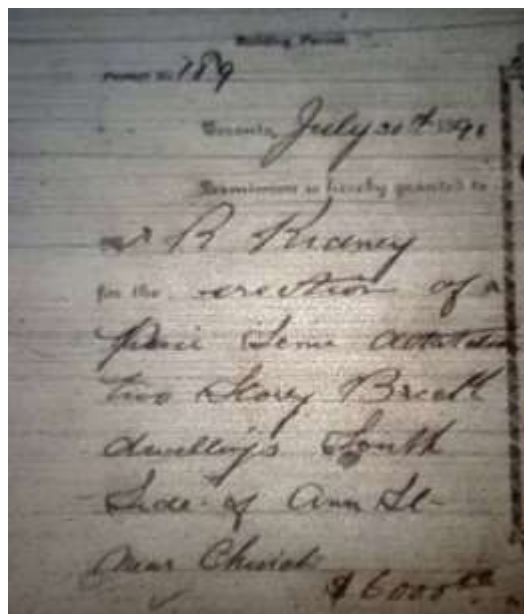 Building Permit
Permit No 189
Toronto, July 30th 1891
Permission is hereby granted to
Mr R Kraney
for the erection of a
pair Semi detatched
two Storey Brick
dwellings South
Side of Ann St-
near Church
$6000 00